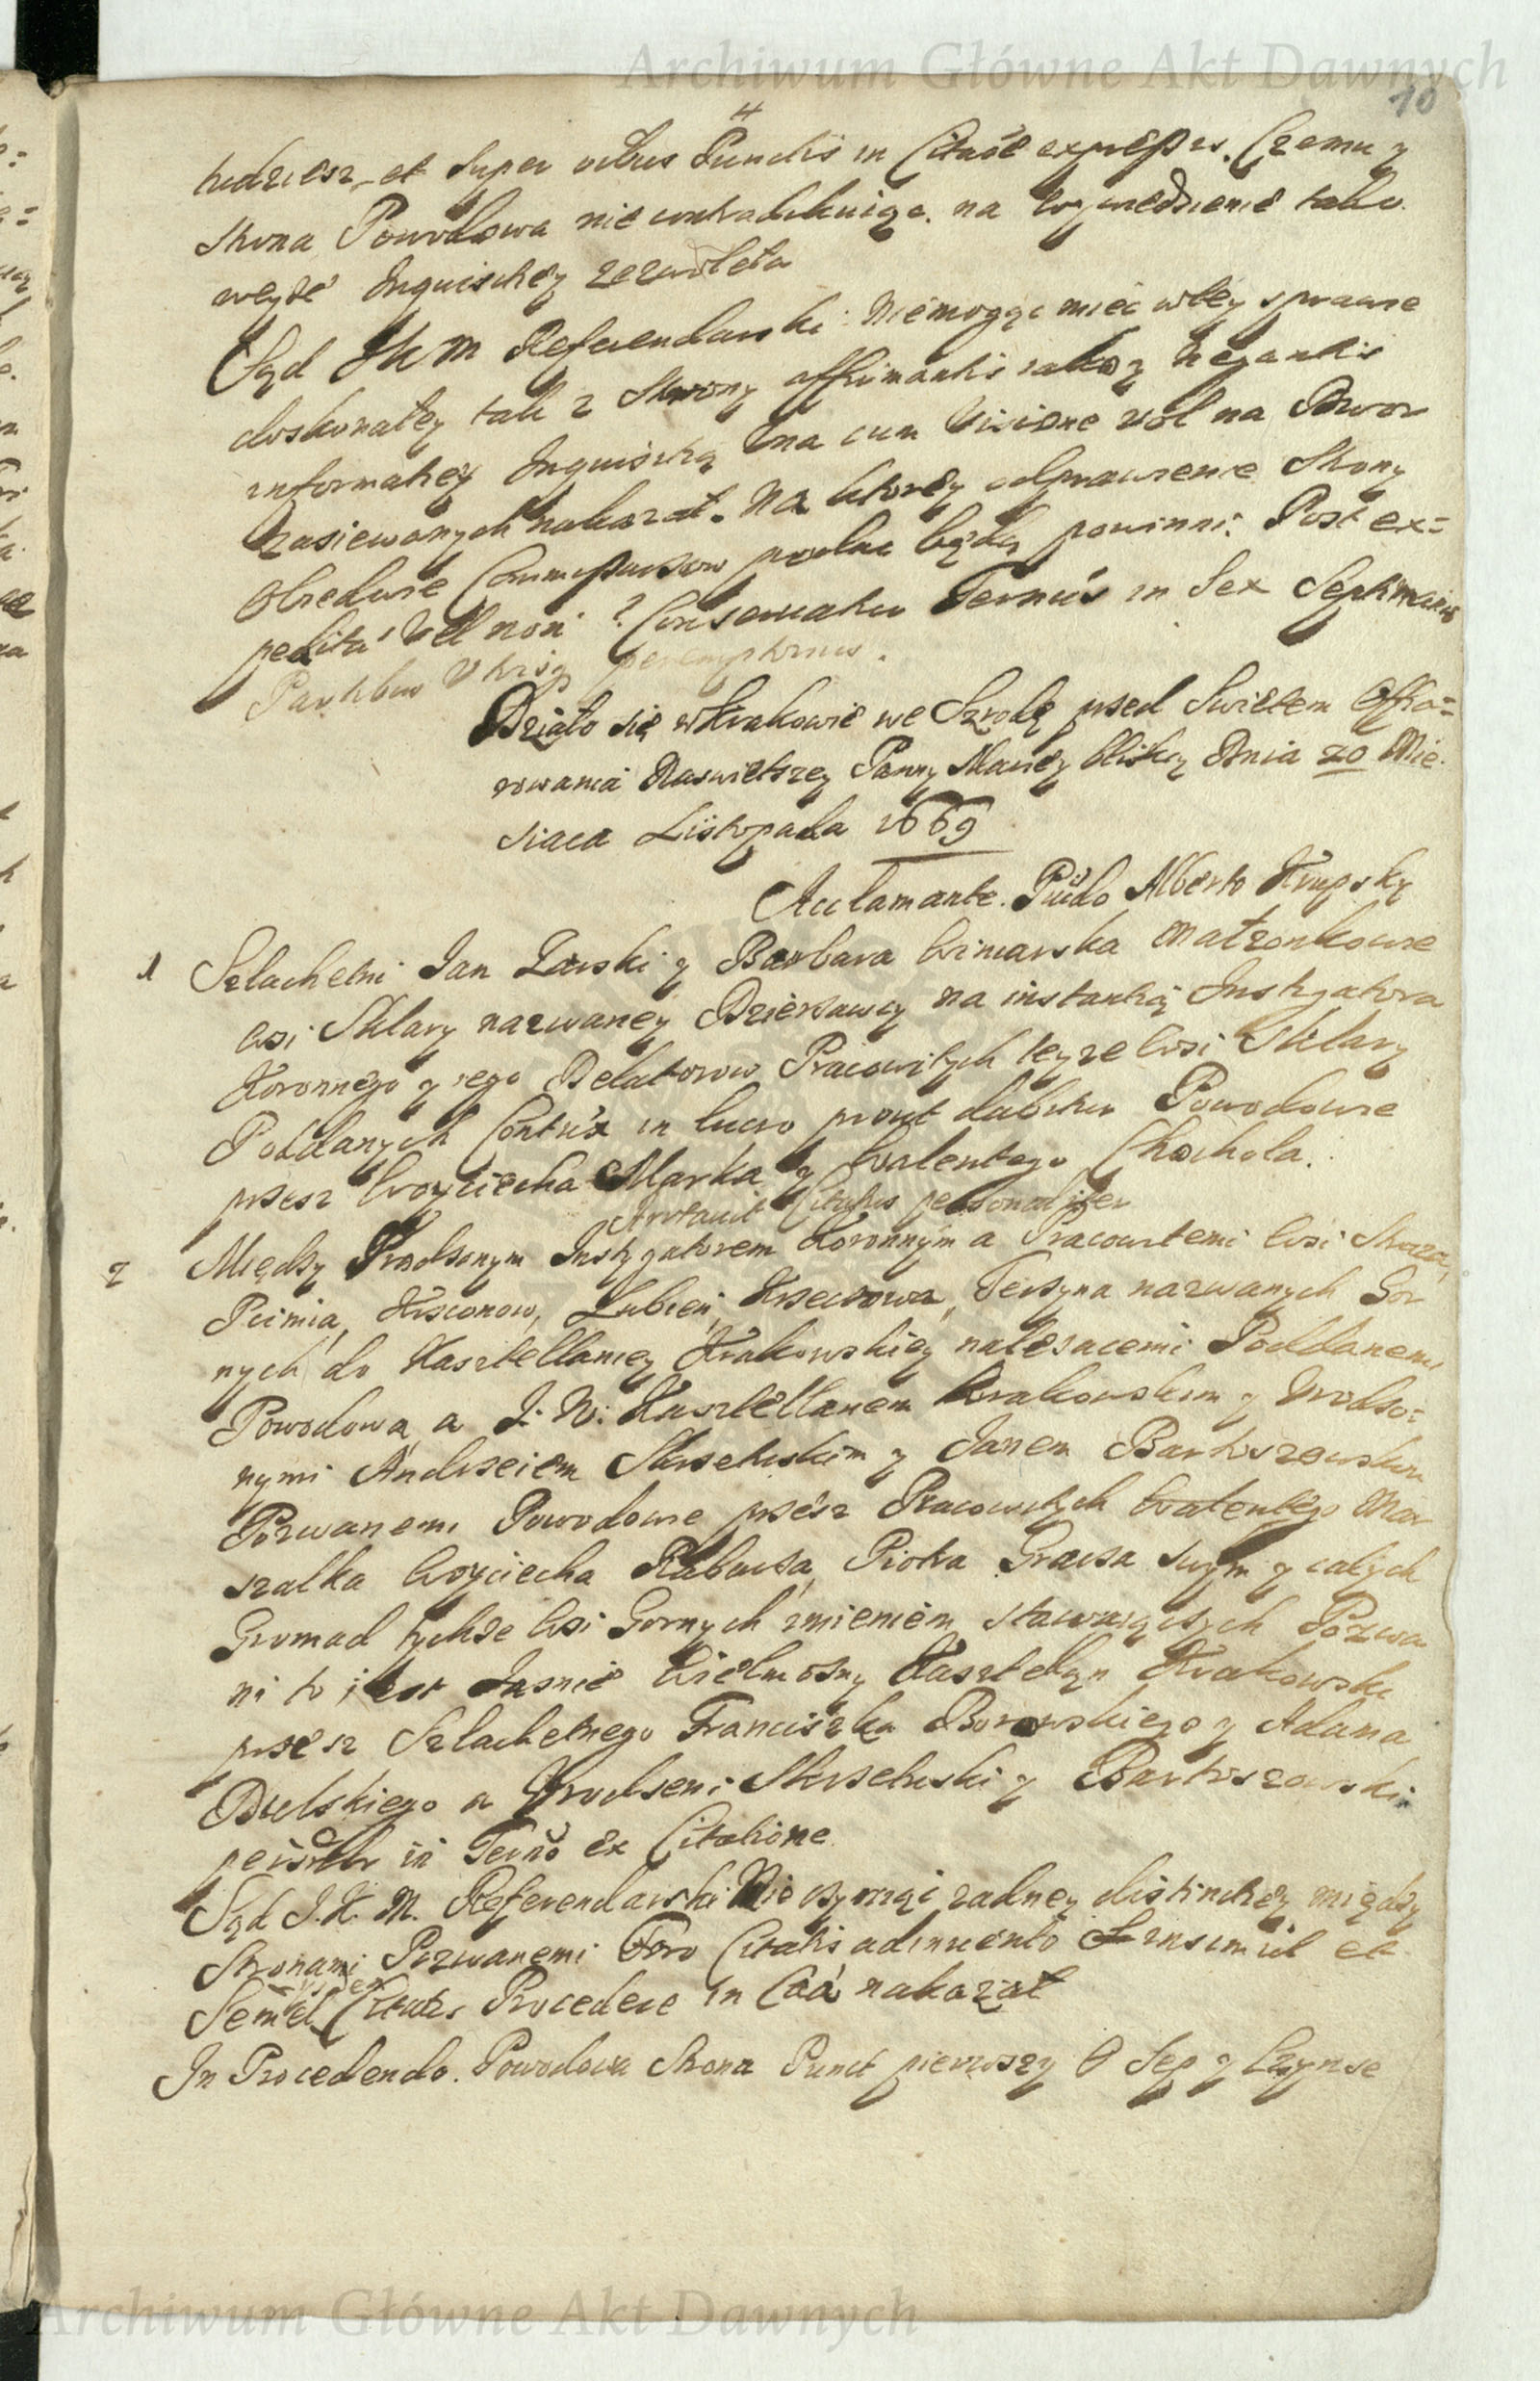 Archiwum Główne Akt Dawnych
10
4
tudziesz, et super aliis Punctis in Citaõe expressis. Czemu y
strona Powodowa nie contradikuiąc na wywiedzienie tako
weyże Inquisitiey zezwoliła
Sąd JKM Referendarski Niemogąc mieć wtey sprawie
doskonałey tak z strony affirmantis iako y Negantis
informatiey Inquisitią una cum Visione ról na Dwor
Zasiewanych nakazał. Na ktorey odprawienie Strony
Obiedwie Commissarzow podac będą powinni. Post ex=
pedita vel non ? Conservatur Termús in Sex Septimanis
Partibus Vtrisq peremptorius.
Działo się w Krakowie we Szrodę przed Swiętem Offia=
rowania Naswietszey Panny Mariey bliską Dnia 20 Mie
siaca Listopada 1669
Acclamante. Pũdo Alberto Krupsky
1 Szlachetni Jan Larski y Barbara Winiarska Małzonkowie
wsi Sklary nazwaney Dzierżawcy na instantią Instygatora
Koronnego y iego Delatorow Pracowitych teyze wsi Sklary
Poddanych Contrã in lucro prout dabitur Powodowie
przez Woyciecha Marka y Walentego Chochola.
Arrotavit Citatus personaliter
2 Między Vrodzonym Instygatorem Koronnym a Pracowitemi wsi Stroza,
Pcimia, Krzconow, Lubień, Krzeczowa, Tenczyna nazwanych Gor
nych do Kasztellaniey Krakowskiey należacemi Poddanemi
Powodową a J. W. Kasztellanem Krakowskim y Vrodzo=
nymi Andrzeiem Skrzetuskim y Janem Bartoszowskim
Pozwanemi Powodowie przesz Pracowitych Walentego Mar
szalka Woyciecha Rabusa, Piotra Gracza swym y całych
Gromad tychże wsi Gornych imieniem stawaiących Pozwa
ni to iest Jasnie Wielmożny Kasztellan Krakowski
przesz Szlachetnego Franciszka Borowskiego y Adama
Bielskiego a Vrodzeni Skrzetuski y Bartoszowski
personlr in Termõ ex Citatione
Sąd J. K. M. Referendarski Nie czyniąc zadney distinctiey między
Stronami Pozwanemi Foro Citatis adinvento et insimul et
Semel Citatis Procedere in Caã nakazał
In Procedendo. Powodowa Strona Punct pierwszy O Sep y Czynsze
Archiwum Główne Akt Dawnych